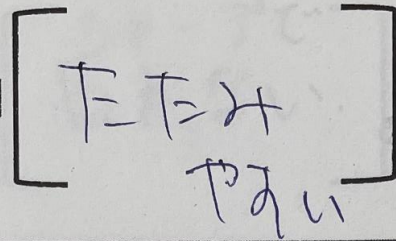 たたみ
やすい